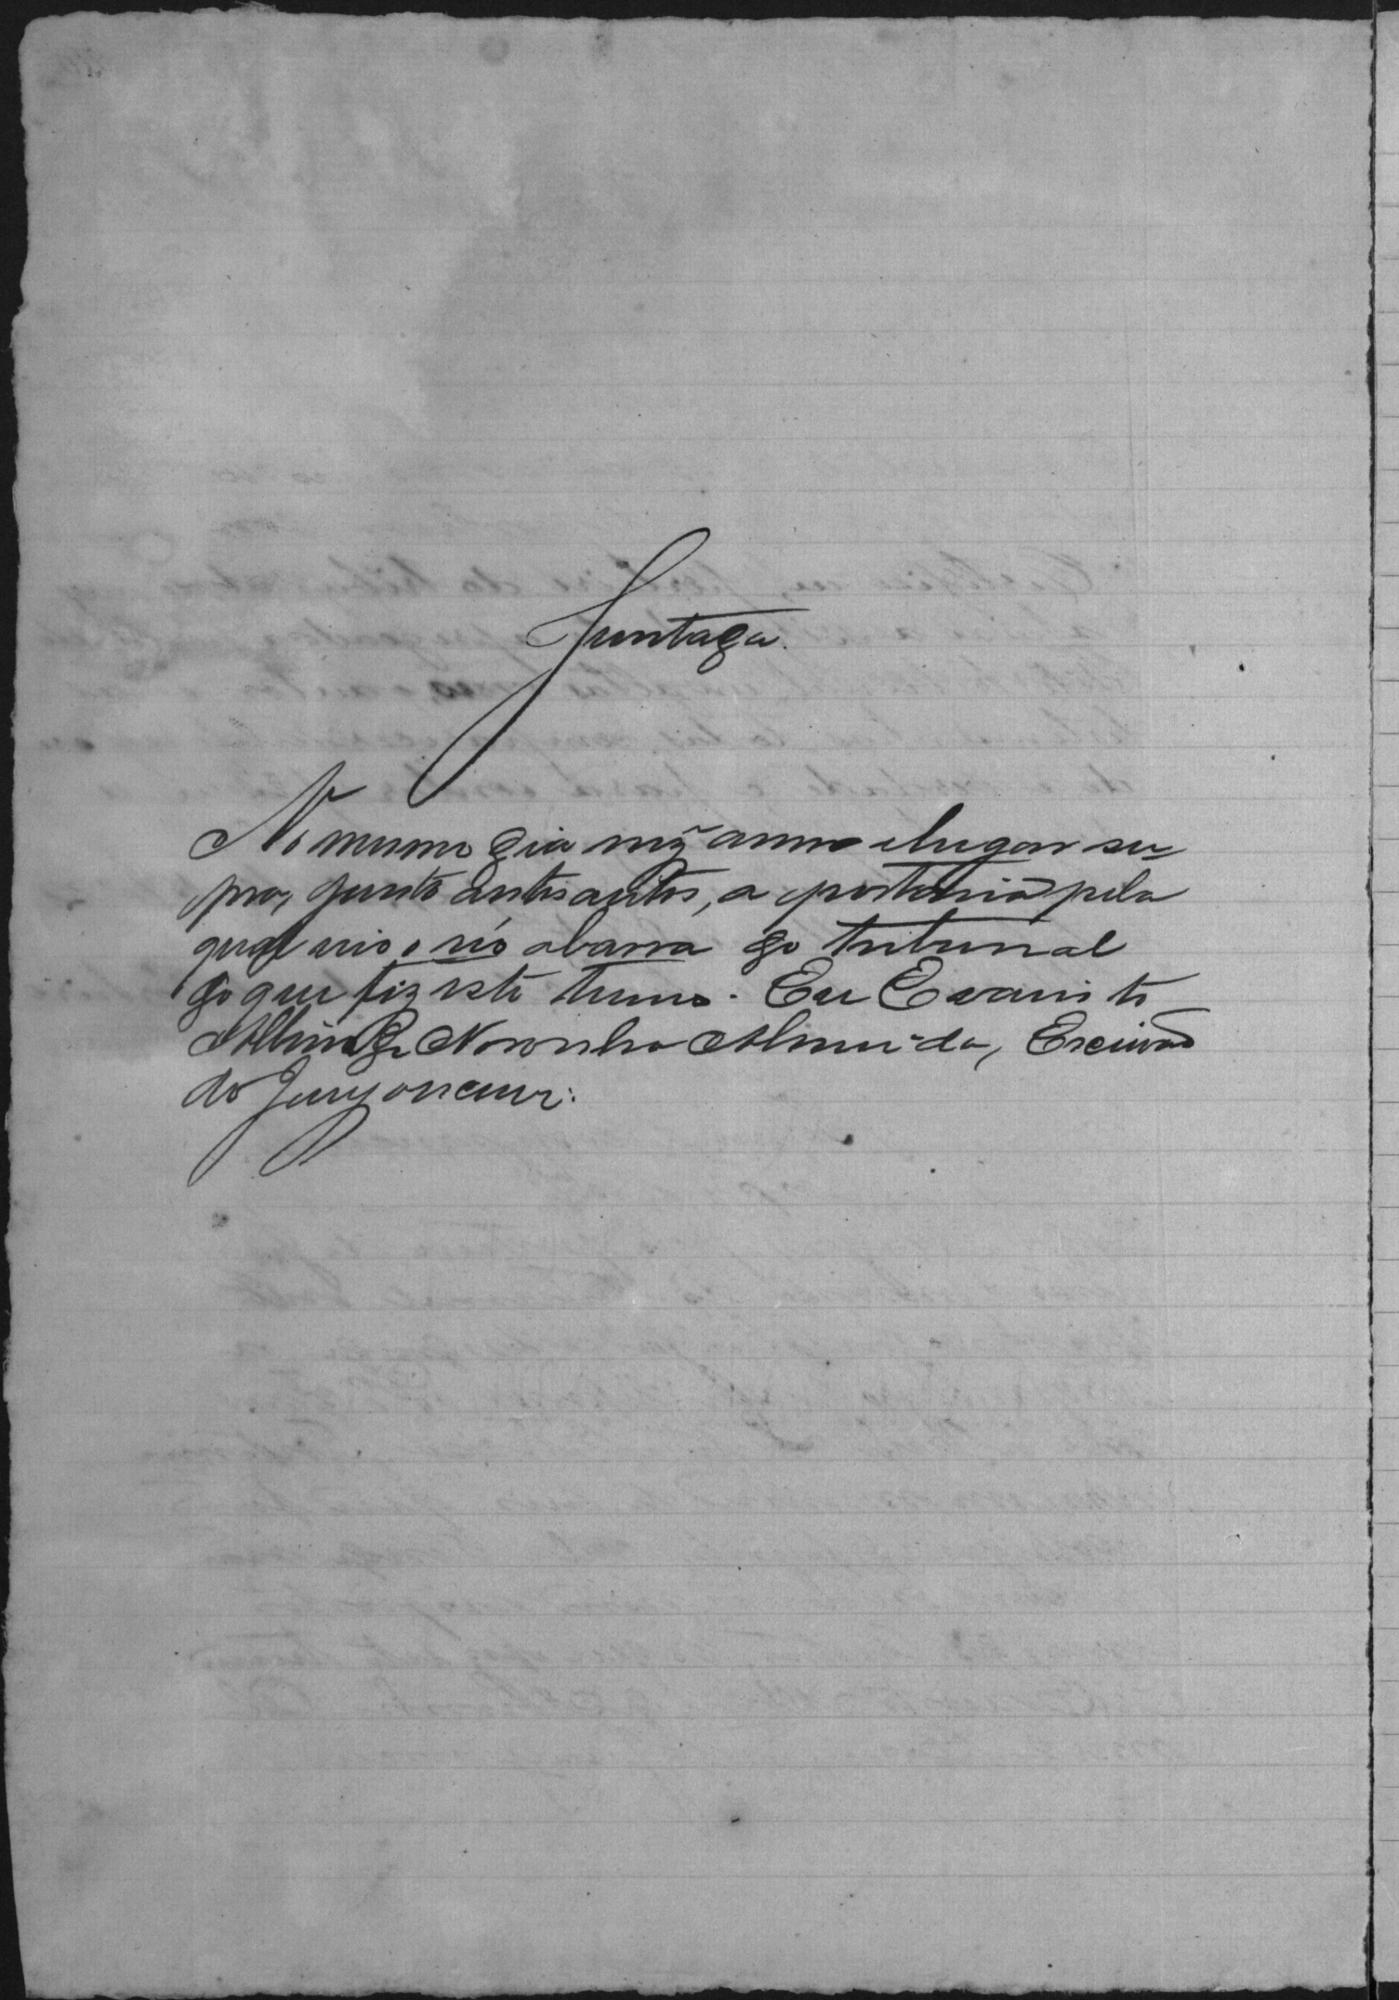 Juntada.
No mesmo dia mez anno e lugar su=
pra, junto a estes autos, a portaria pela
qual veio o réo a barra do tribunal
do que fiz este termo. Eu Evaristo
de Noronha Almeida, Escrivão
do Jury o escrevi: